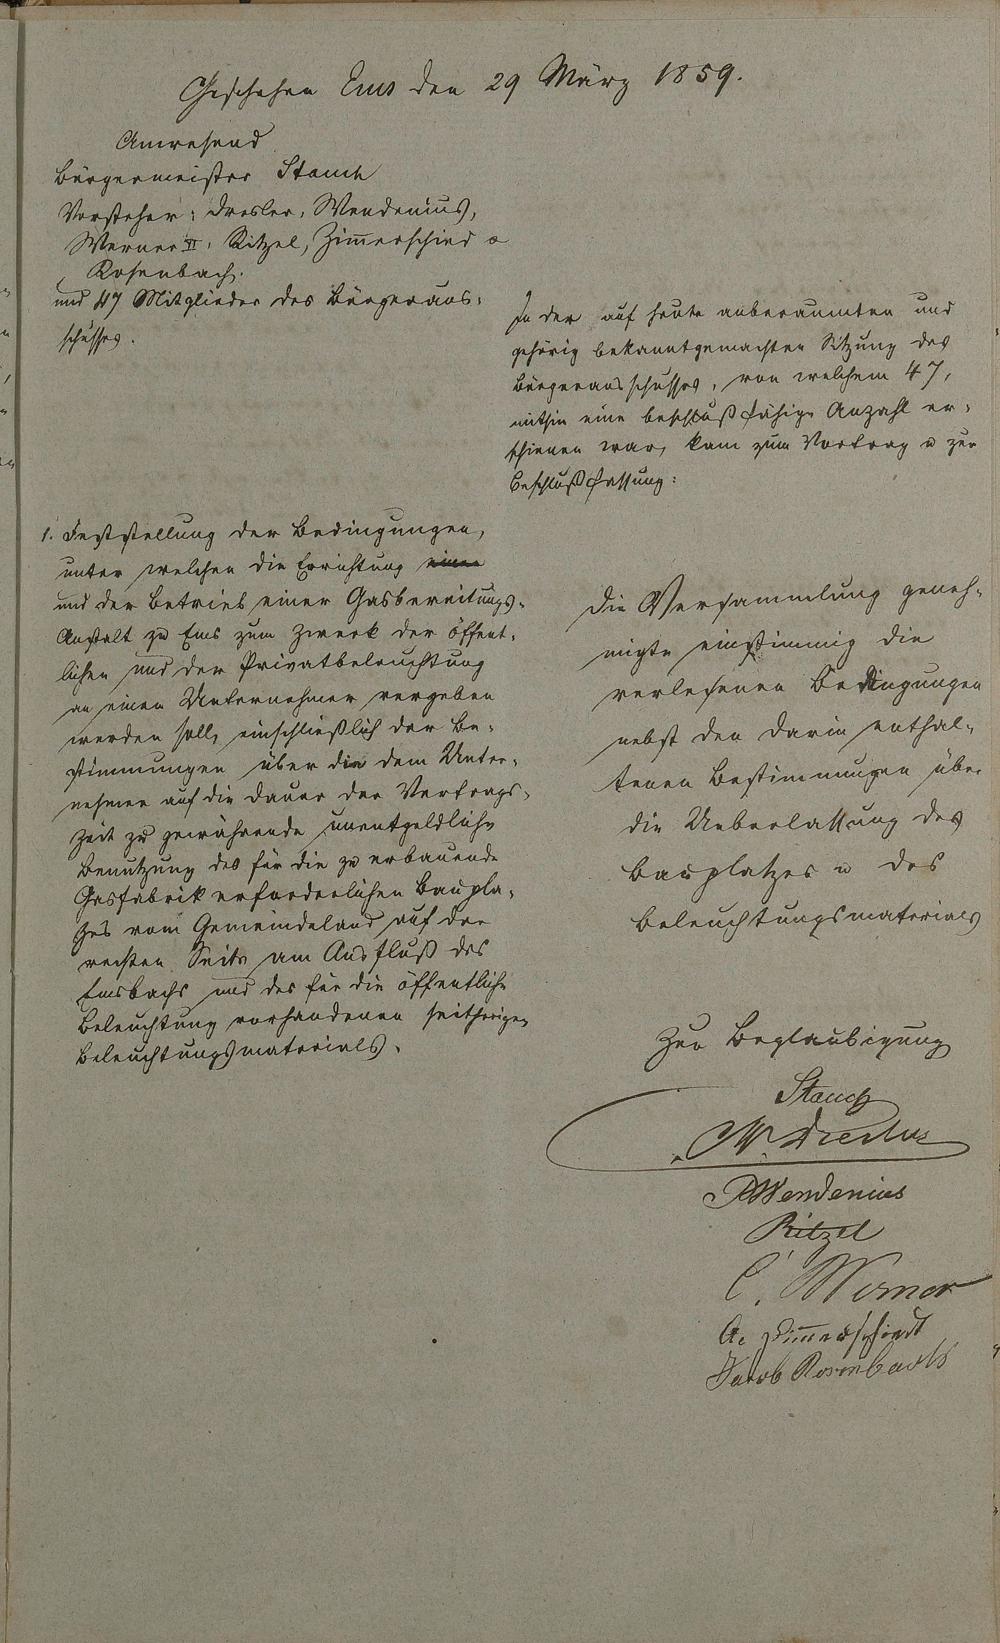 Geschehen Ems den 29 März 1859.
Anwesend
Bürgermeister Stauch
Vorsteher: Dresler, Wendenius,
Werner II, Ritzel, Zimerschied u
Rosenbach.
und 47 Mitglieder des Bürgeraus-
schusses.
In der auf heute anberaumten und
gehörig bekanntgemachten Sitzung des
Bürgerausschusses, von welchem 47,
mithin eine beschlußfähige Anzahl er-
schienen war, kam zum Vortrag u zur
Beschlußfassung:
1. Feststellung der Bedingungen,
unter welchen die Errichtung einer
und der Betrieb einer Gasbereitungs-
Anstalt zu Ems zum Zweck der öffent-
lichen und der Privatbeleuchtung
an einen Unternehmer vergeben
werden soll, einschließlich der Be-
stimmungen über die dem Unter-
nehmer auf die Dauer der Vertrags-
zeit zu gewährende unentgeldliche
Benutzung des für die zu erbauende
Gasfabrik erforderlichen Baupla-
zes vom Gemeindeland auf der
rechten Seite am Ausfluß des
Emsbachs und des für die öffentliche
Beleuchtung vorhandenen seitherigen
Beleuchtungsmaterials.
Die Versammlung geneh-
migte einstimmig die
verlesenen Bedingungen
nebst den darin enthal-
tenen Bestimmungen über
die Ueberlassung des
Bauplatzes u des
Beleuchtungsmaterials
Zur Beglaubigung
Stauch
W. Dresler
Wendenius
Ritzel
C. Werner
A. Zimerschiedt
Jacob Rosenbach